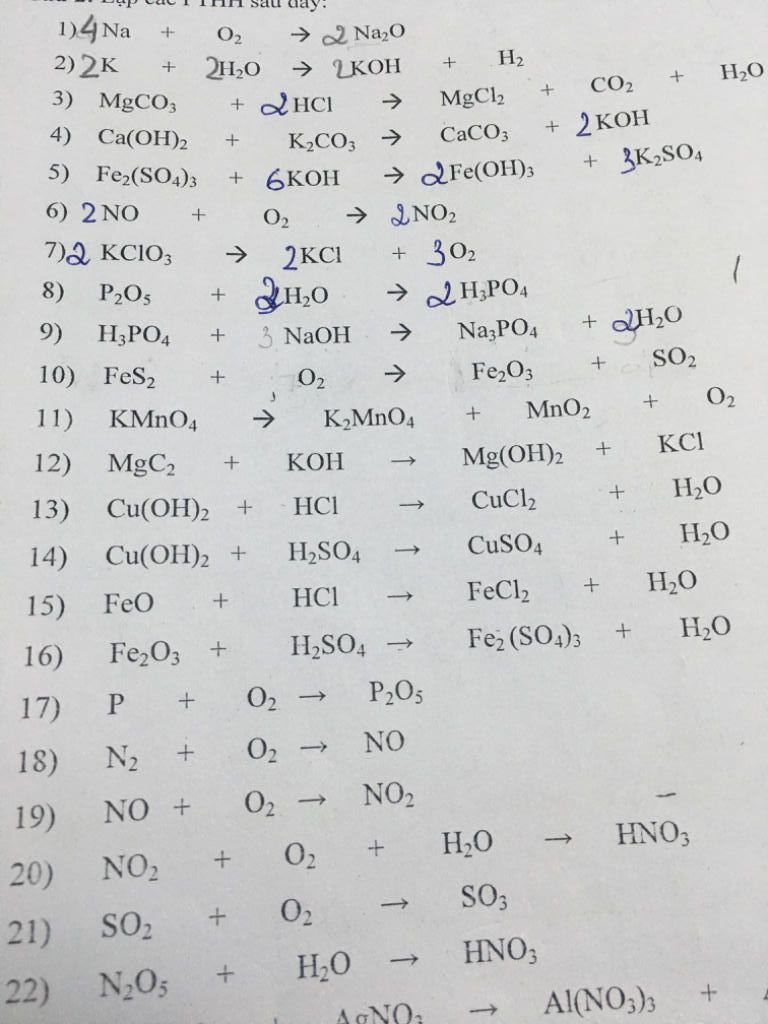 Lập các PTHH sau đây:
1) 4 Na + O₂ → 2 Na₂O
2) 2K + 2H₂O → 2KOH + H₂
3) MgCO₃ + 2 HCl → MgCl₂ + CO₂ + H₂O
4) Ca(OH)₂ + K₂CO₃ → CaCO₃ + 2 KOH
5) Fe₂(SO₄)₃ + 6 KOH → 2 Fe(OH)₃ + 3 K₂SO₄
6) 2 NO + O₂ → 2 NO₂
7) 2 KClO₃ → 2 KCl + 3 O₂
8) P₂O₅ + H₂O → 2 H₃PO₄
9) H₃PO₄ + 3 NaOH → Na₃PO₄ + H₂O
10) FeS₂ + O₂ → Fe₂O₃ + SO₂
11) KMnO₄ → K₂MnO₄ + MnO₂ + O₂
12) MgC₂ + KOH → Mg(OH)₂ + KCl
13) Cu(OH)₂ + HCl → CuCl₂ + H₂O
14) Cu(OH)₂ + H₂SO₄ → CuSO₄ + H₂O
15) FeO + HCl → FeCl₂ + H₂O
16) Fe₂O₃ + H₂SO₄ → Fe₂(SO₄)₃ + H₂O
17) P + O₂ → P₂O₅
18) N₂ + O₂ → NO
19) NO + O₂ → NO₂
20) NO₂ + O₂ + H₂O → HNO₃
21) SO₂ + O₂ → SO₃
22) N₂O₅ + H₂O → HNO₃
AgNO₃ → Al(NO₃)₃ +